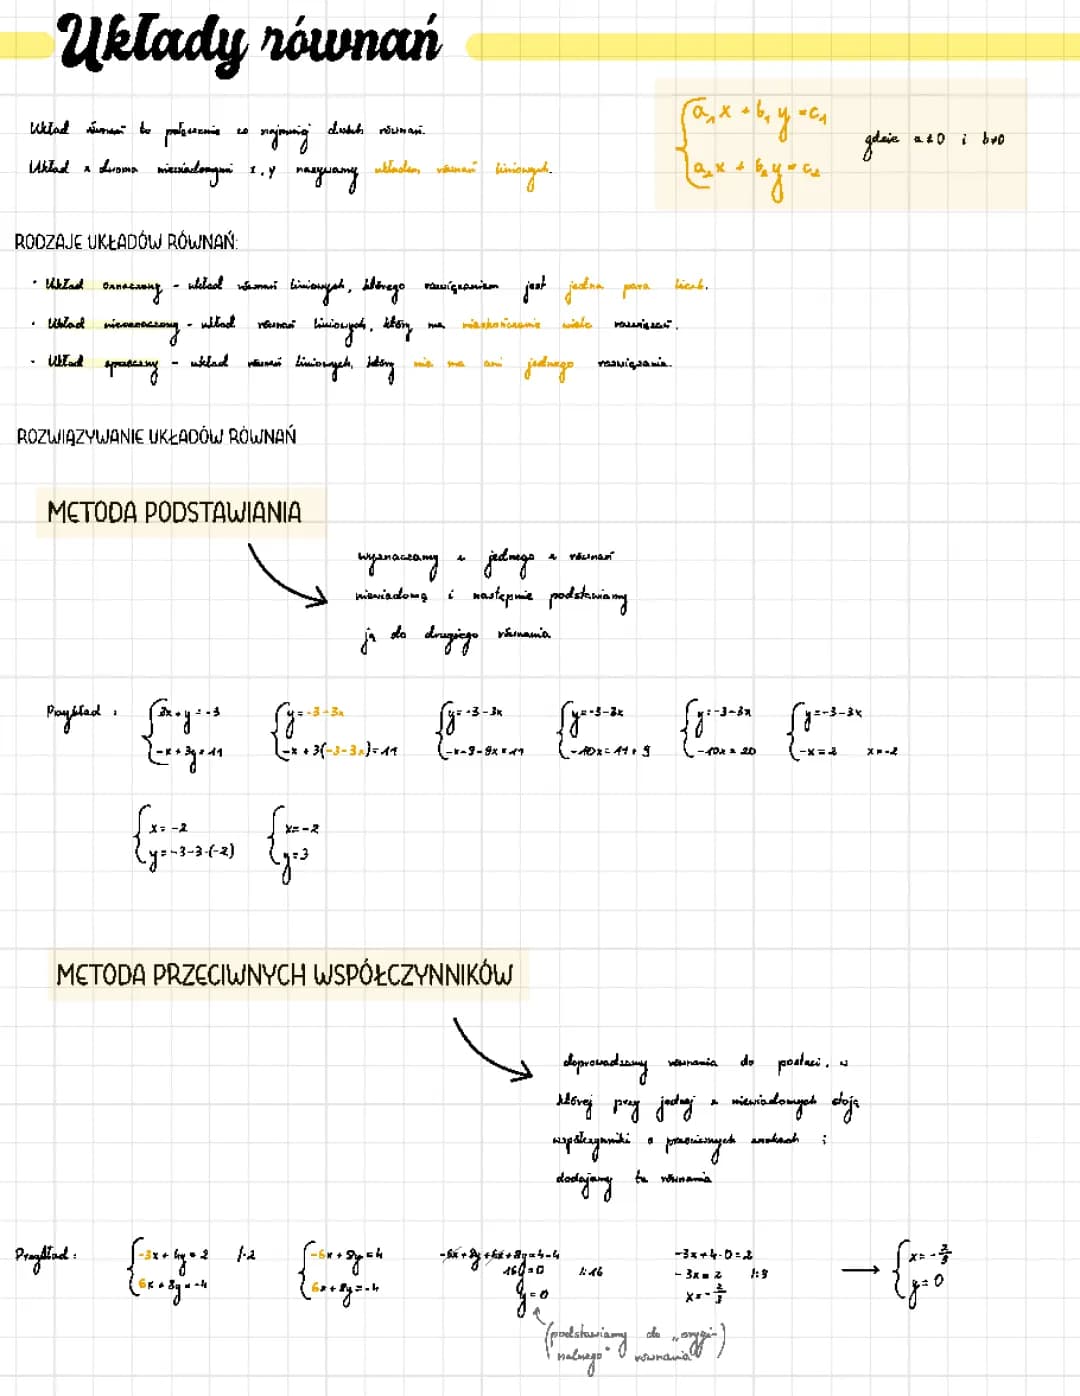 Układy równań
Układ równań to połączenie co najmniej dwóch równań.
Układ z dwoma niewiadomymi x, y nazywamy układem równań liniowych.
{a₁x + b₁y = c₁
{a₂x + b₂y = c₂
gdzie a≠0 i b≠0
RODZAJE UKŁADÓW RÓWNAŃ:
· Układ oznaczony - układ równań liniowych, którego rozwiązaniem jest jedna para liczb.
· Układ nieoznaczony - układ równań liniowych, który ma nieskończenie wiele rozwiązań.
· Układ sprzeczny - układ równań liniowych, który nie ma ani jednego rozwiązania.
ROZWIĄZYWANIE UKŁADÓW RÓWNAŃ
METODA PODSTAWIANIA
wyznaczamy z jednego z równań
niewiadomą i następnie podstawiamy
ją do drugiego równania
Przykład : {3x+y=-3 {y=-3-3x {y=-3-3x {y=-3-3x {y=-3-3x {y=-3-3x
{-x+3y=11 {-x+3(-3-3x)=11 {-x-9-9x=11 {-10x=11+9 {-10x=20 {-x=2 x=-2
{x=-2 {x=-2
{y=-3-3·(-2) {y=3
METODA PRZECIWNYCH WSPÓŁCZYNNIKÓW
doprowadzamy równania do postaci, w
której przy jednej z niewiadomych stoją
współczynniki o przeciwnych znakach i
dodajemy te równania
Przykład : {-3x+4y=2 /·2 {-6x+8y=4 -6x+8y+6x+8y=4-4 -3x+4·0=2 {x=-2/3
{6x+8y=-4 {6x+8y=-4 16y=0 /:16 -3x=2 /:3 {y=0
y=0 x=-2/3
(podstawiamy do „orygi-
nalnego" równania)